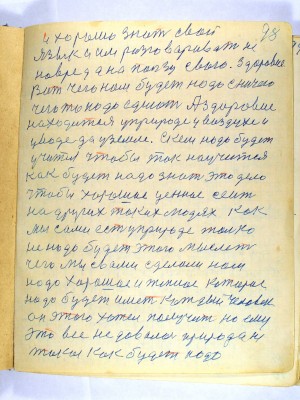 98
и хорошо знат свой
язык и им разговариват не
на ползу свого. Здоровие
Вот чего нам будет надо с ничего
чего то надо однот А здоровие
находится у природе у воздухе и
у воде да у земле. С кем надо будет
учится чтобы так научится
как будет надо знат это дело
чтобы хорошое ценное сеят
на других таких людях как
мы сами ест у природе только
не надо будет этого мыслет
чего мы с вами сделали нам
надо хорошое и теплое которое
надо будет имет каждый человек
он этого хотел получит но ему
это все не довала природа не
такой как будет надо